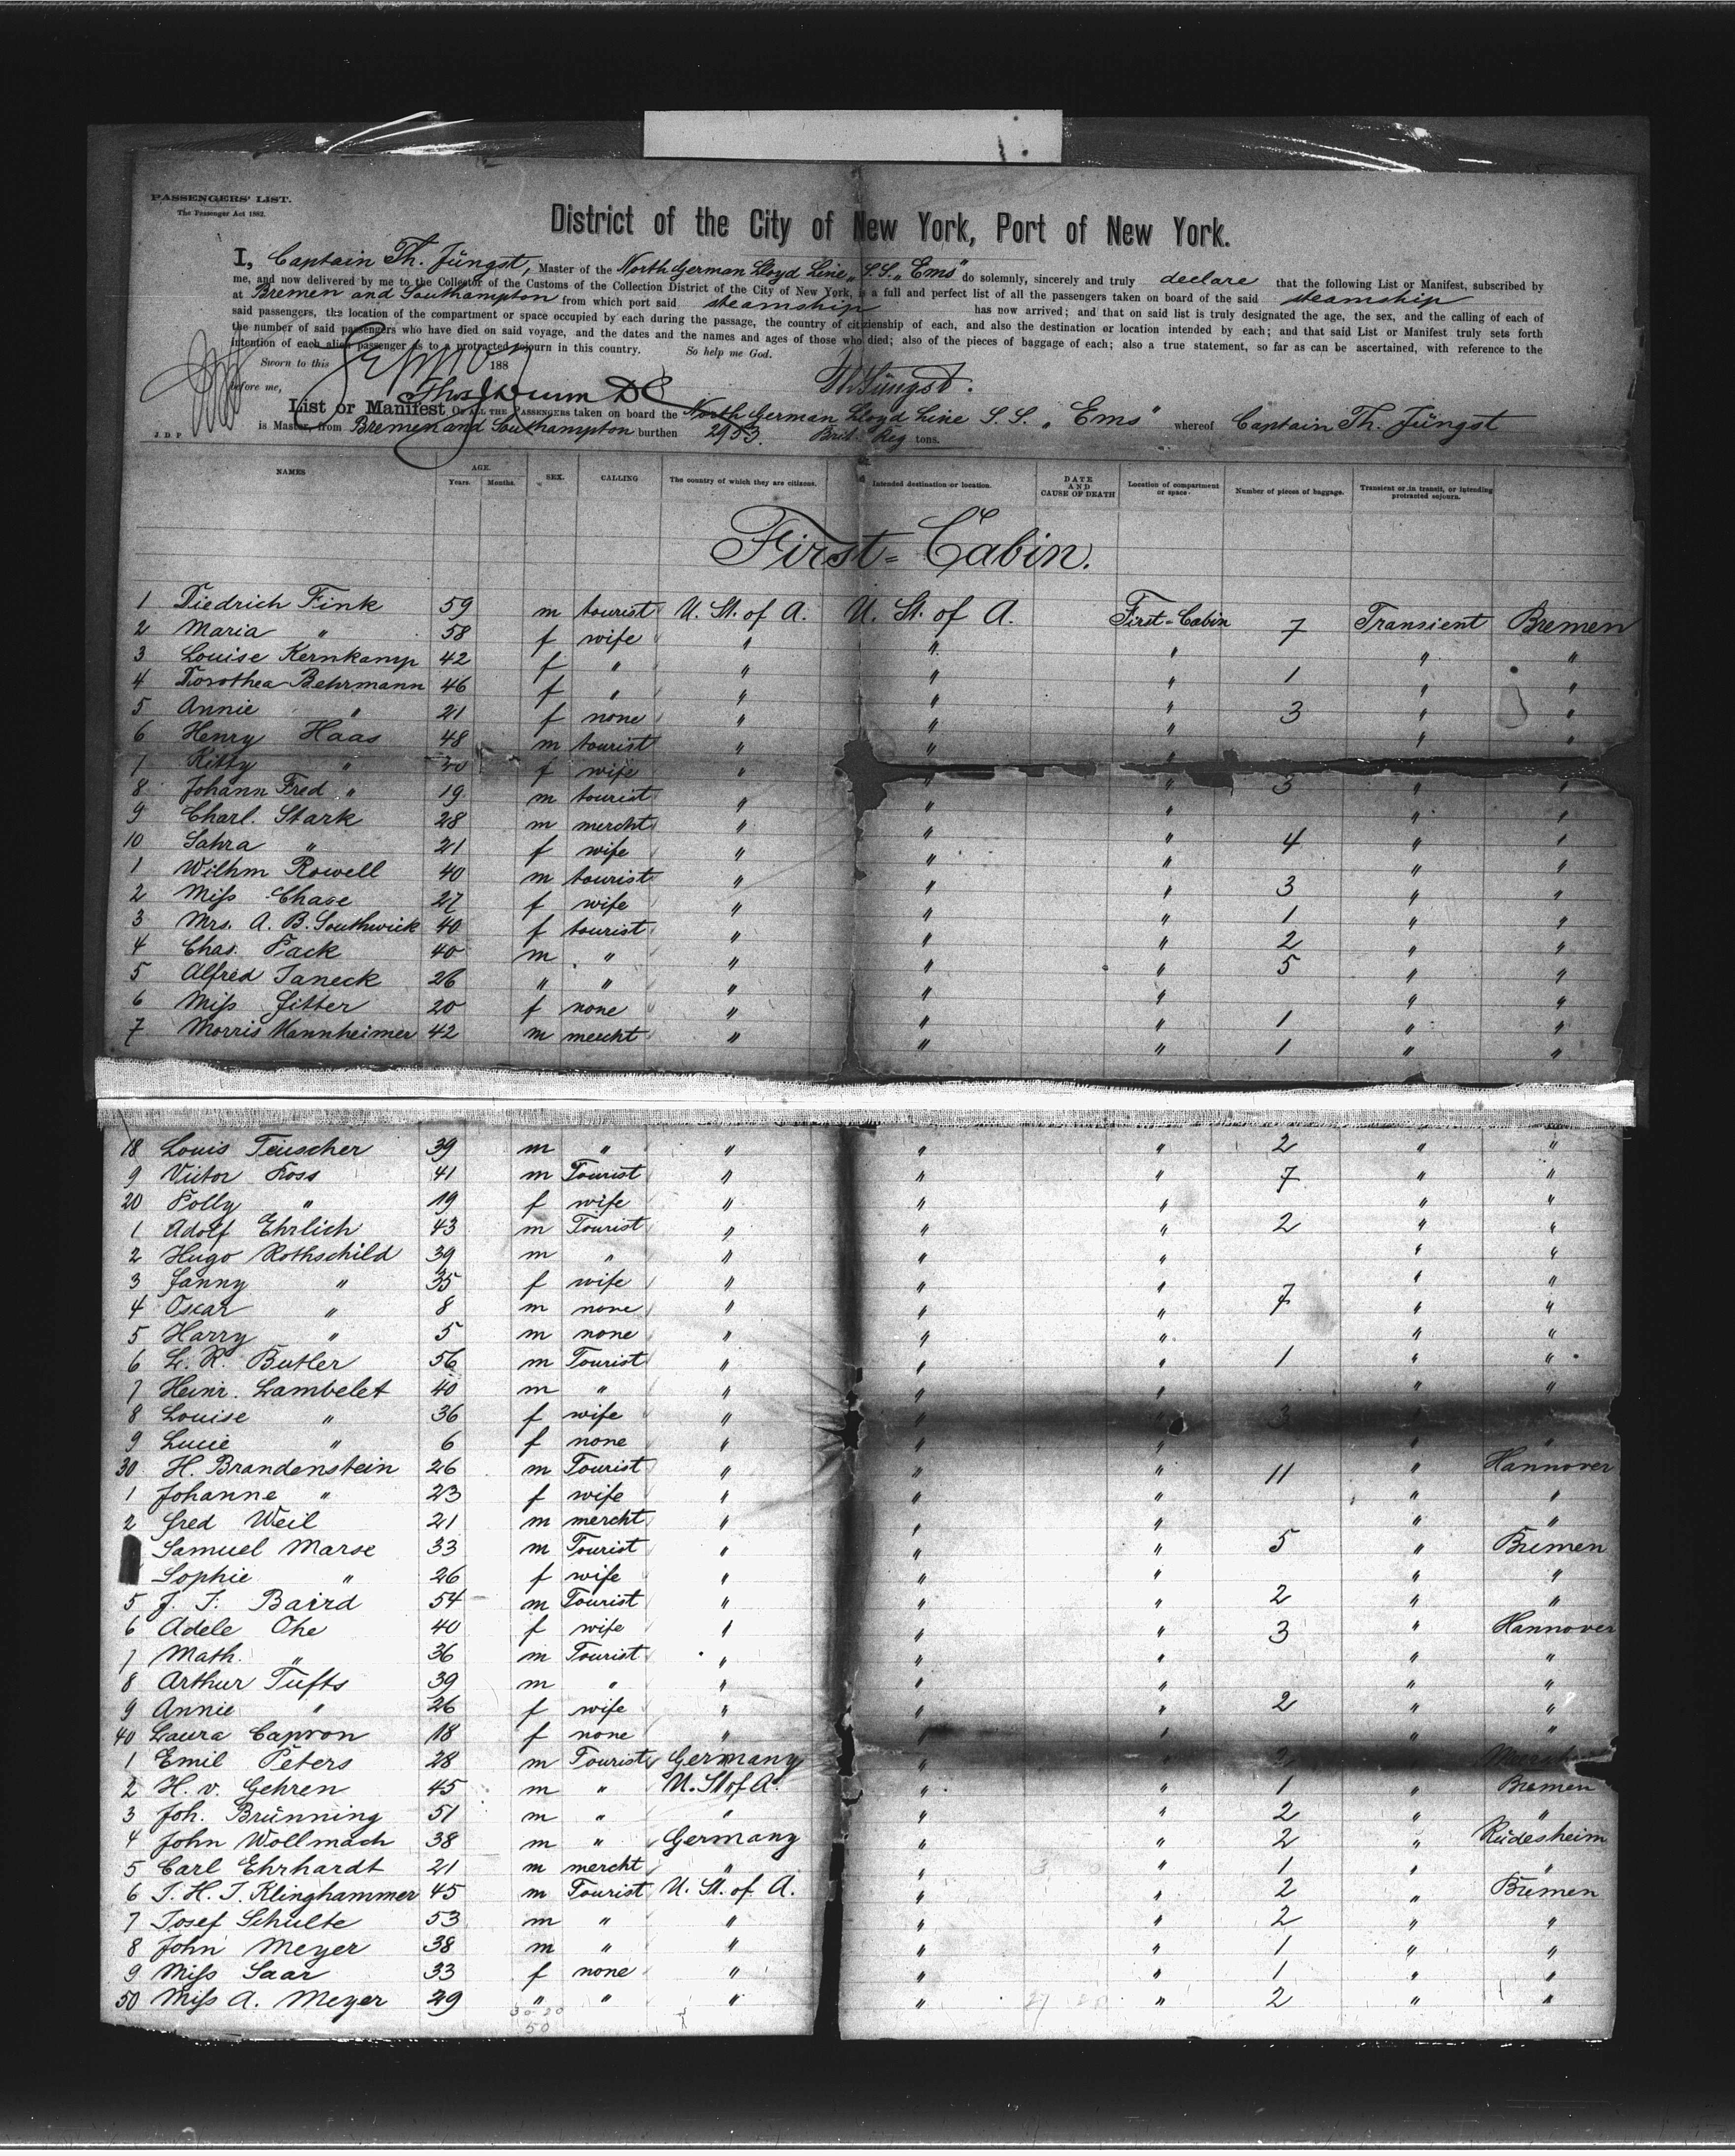 PASSENGERS' LIST.
The Passenger Act 1882.
District of the City of New York, Port of New York.
I, Captain Th. Jüngst, Master of the North German Lloyd Line, S.S. „Ems" do solemnly, sincerely and truly declare that the following List or Manifest, subscribed by
me, and now delivered by me to the Collector of the Customs of the Collection District of the City of New York, is a full and perfect list of all the passengers taken on board of the said steamship
at Bremen and Southampton from which port said steamship has now arrived; and that on said list is truly designated the age, the sex, and the calling of each of
said passengers, the location of the compartment or space occupied by each during the passage, the country of citizenship of each, and also the destination or location intended by each; and that said List or Manifest truly sets forth
the number of said passengers who have died on said voyage, and the dates and the names and ages of those who died; also of the pieces of baggage of each; also a true statement, so far as can be ascertained, with reference to the
intention of each alien passenger as to a protracted sojourn in this country. So help me God.
Sworn to this 188
before me, Th Jüngst.
List or Manifest OF ALL THE PASSENGERS taken on board the North German Lloyd Line S.S. „Ems" whereof Captain Th. Jüngst
J. D. P
is Master, from Bremen and Southampton burthen 2953. Brit. Reg tons.
NAMES AGE. Years. Months. SEX. CALLING The country of which they are citizens. Intended destination or location. DATE AND CAUSE OF DEATH Location of compartment or space. Number of pieces of baggage. Transient or in transit, or intending protracted sojourn.
First-Cabin.
1 Diedrich Fink 59 m tourist U. St. of A. U. St. of A. First-Cabin 7 Transient Bremen
2 Maria " 58 f wife " " " " "
3 Louise Kernkamp 42 f " " " " 1 " "
4 Dorothea Behrmann 46 f " " " " 3 " "
5 Annie " 21 f none " " " " "
6 Henry Haas 48 m tourist " " " 3 " "
7 Kitty " f wife " " " " "
8 Johann Fred " 19 m tourist " " " " "
9 Charl. Stark 28 m mercht " " " 4 " "
10 Sahra " 21 f wife " " " " "
1 Wilhm Rowell 40 m tourist " " " 3 " "
2 Miss Chase 27 f wife " " " 1 " "
3 Mrs. A. B. Southwick 40 f tourist " " " 2 " "
4 Chas. Pack 40 m " " " " 5 " "
5 Alfred Janeck 26 " " " " " " "
6 Miss Fitter 20 f none " " " 1 " "
7 Morris Mannheimer 42 m mercht " " " 1 " "
18 Louis Teuscher 39 m " " " " 2 " "
9 Victor Ross 41 m Tourist " " " 7 " "
20 Polly " 19 f wife " " " " "
1 Adolf Ehrlich 43 m Tourist " " " 2 " "
2 Hugo Rothschild 39 m " " " " " "
3 Fanny " 35 f wife " " " 7 " "
4 Oscar " 8 m none " " " " "
5 Harry " 5 m none " " " " "
6 L. R. Butler 56 m Tourist " " " 1 " "
7 Heinr. Lambelet 40 m " " " " " "
8 Louise " 36 f wife " " " 3
9 Lucie " 6 f none " " " " "
30 H. Brandenstein 26 m Tourist " " " 11 " Hannover
1 Johanne " 23 f wife " " " " "
2 Fred Weil 21 m mercht " " " " "
Samuel Marse 33 m Tourist " " " 5 " Bremen
Sophie " 26 f wife " " " " "
5 J. T. Baird 54 m Tourist " " " 2 " "
6 Adele Ohe 40 f wife " " " 3 " Hannover
7 Math. " 36 m Tourist " " " " "
8 Arthur Tufts 39 m " " " " " "
9 Annie " 26 f wife " " " 2 " "
40 Laura Capron 18 f none " " " " "
1 Emil Peters 28 m Tourist Germany " " 2
2 H. v. Gehren 45 m " U. St of A. " " 1 " Bremen
3 Joh. Brünning 51 m " " " " 2 " "
4 John Wollmach 38 m " Germany " " 2 " Rüdesheim
5 Carl Ehrhardt 21 m mercht " " " 1 " "
6 T. H. J. Klinghammer 45 m Tourist U. St. of A. " " 2 " Bremen
7 Josef Schulte 53 m " " " " 2 " "
8 John Meyer 38 m " " " " 1 " "
9 Miss Saar 33 f none " " " 1 " "
50 Miss A. Meyer 29 " " " " " 2 " "
30 20
50